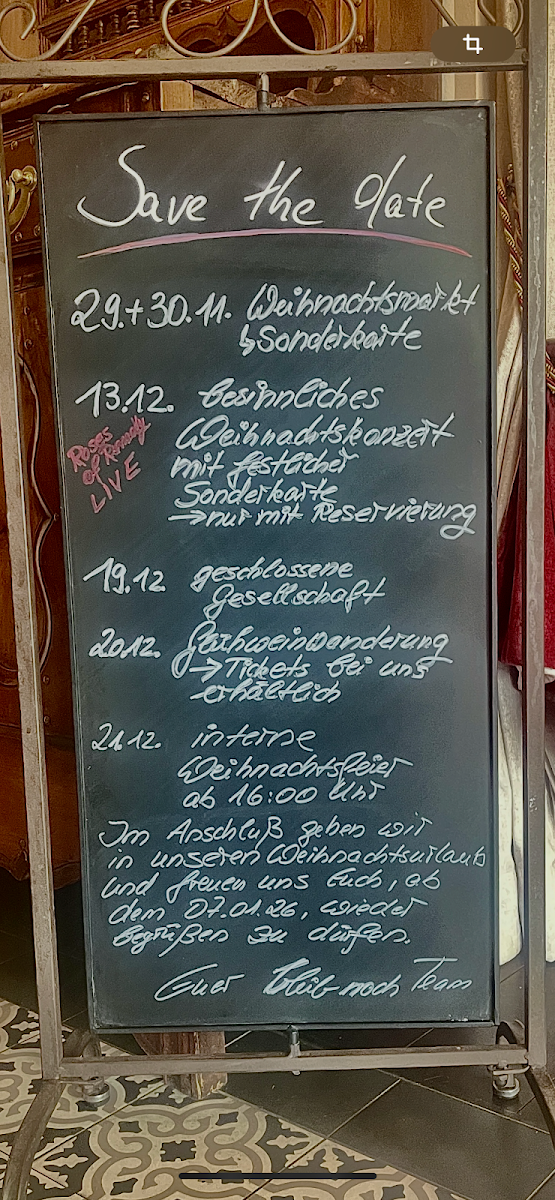 Save the date
29.+30.11. Weihnachtsmarkt
↳Sonderkarte
13.12. besinnliches
Weihnachtskonzert
mit festlicher
Sonderkarte
→nur mit Reservierung
Roses
of
LIVE
19.12 geschlossene
Gesellschaft
20.12. Glühweinwanderung
→Tickets bei uns
erhältlich
21.12. interne
Weihnachtsfeier
ab 16:00 Uhr
Im Anschluß gehen wir
in unseren Weihnachtsurlaub
und freuen uns Euch, ab
dem 07.01.26, wieder
begrüßen zu dürfen.
Euer bleib-noch Team